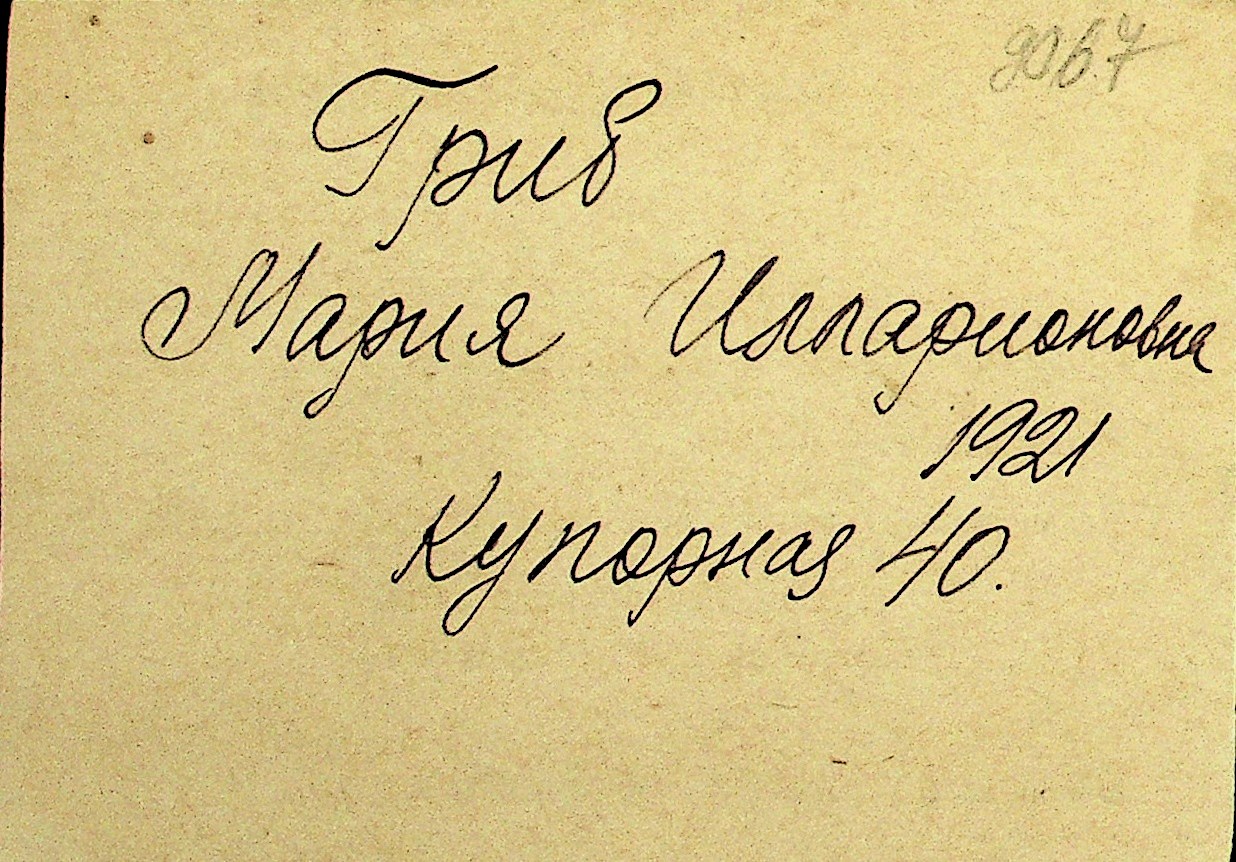 Гриб
Мария Илларионовна
1921
Купорная 40.